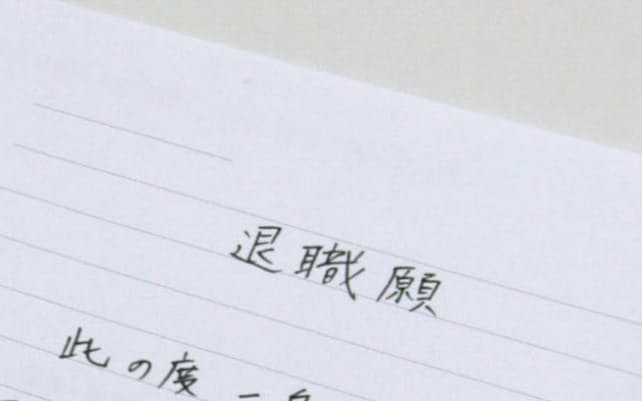 退職願
此の度 一